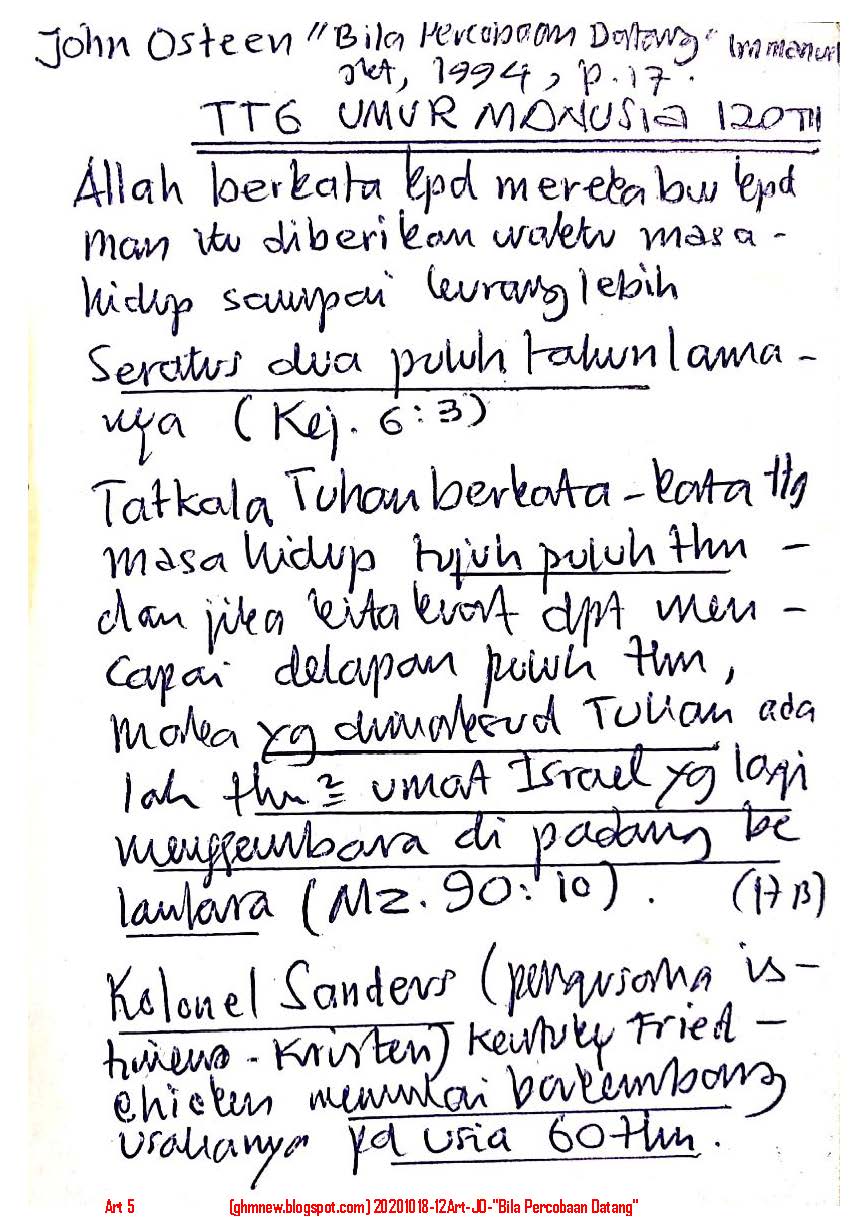 John Osteen "Bila Percobaan Datang" Immanuel
Jkt, 1994, p. 17.
TTG UMUR MANUSIA 120 TH
Allah berkata kpd mereka bw kpd
man itu diberikan waktu masa-
hidup sampai kurang lebih
Seratus dua puluh tahun lama-
nya (Kej. 6:3)
Tatkala Tuhan berkata-kata ttg
masa hidup tujuh puluh thn -
dan jika kita kuat dpt men-
capai delapan puluh thn,
maka yg dimaksud Tuhan ada
lah thn2 umat Israel yg lagi
menggembara di padang be
lantara (Mz. 90:10). (17 B)
Kolonel Sanders (pengusaha is-
- Kristen) Kentuky Fried -
Chicken memulai
usahanya pd usia 60 thn.
Art 5 (ghmnew.blogspot.com) 20201018-12Art-JO-"Bila Percobaan Datang"